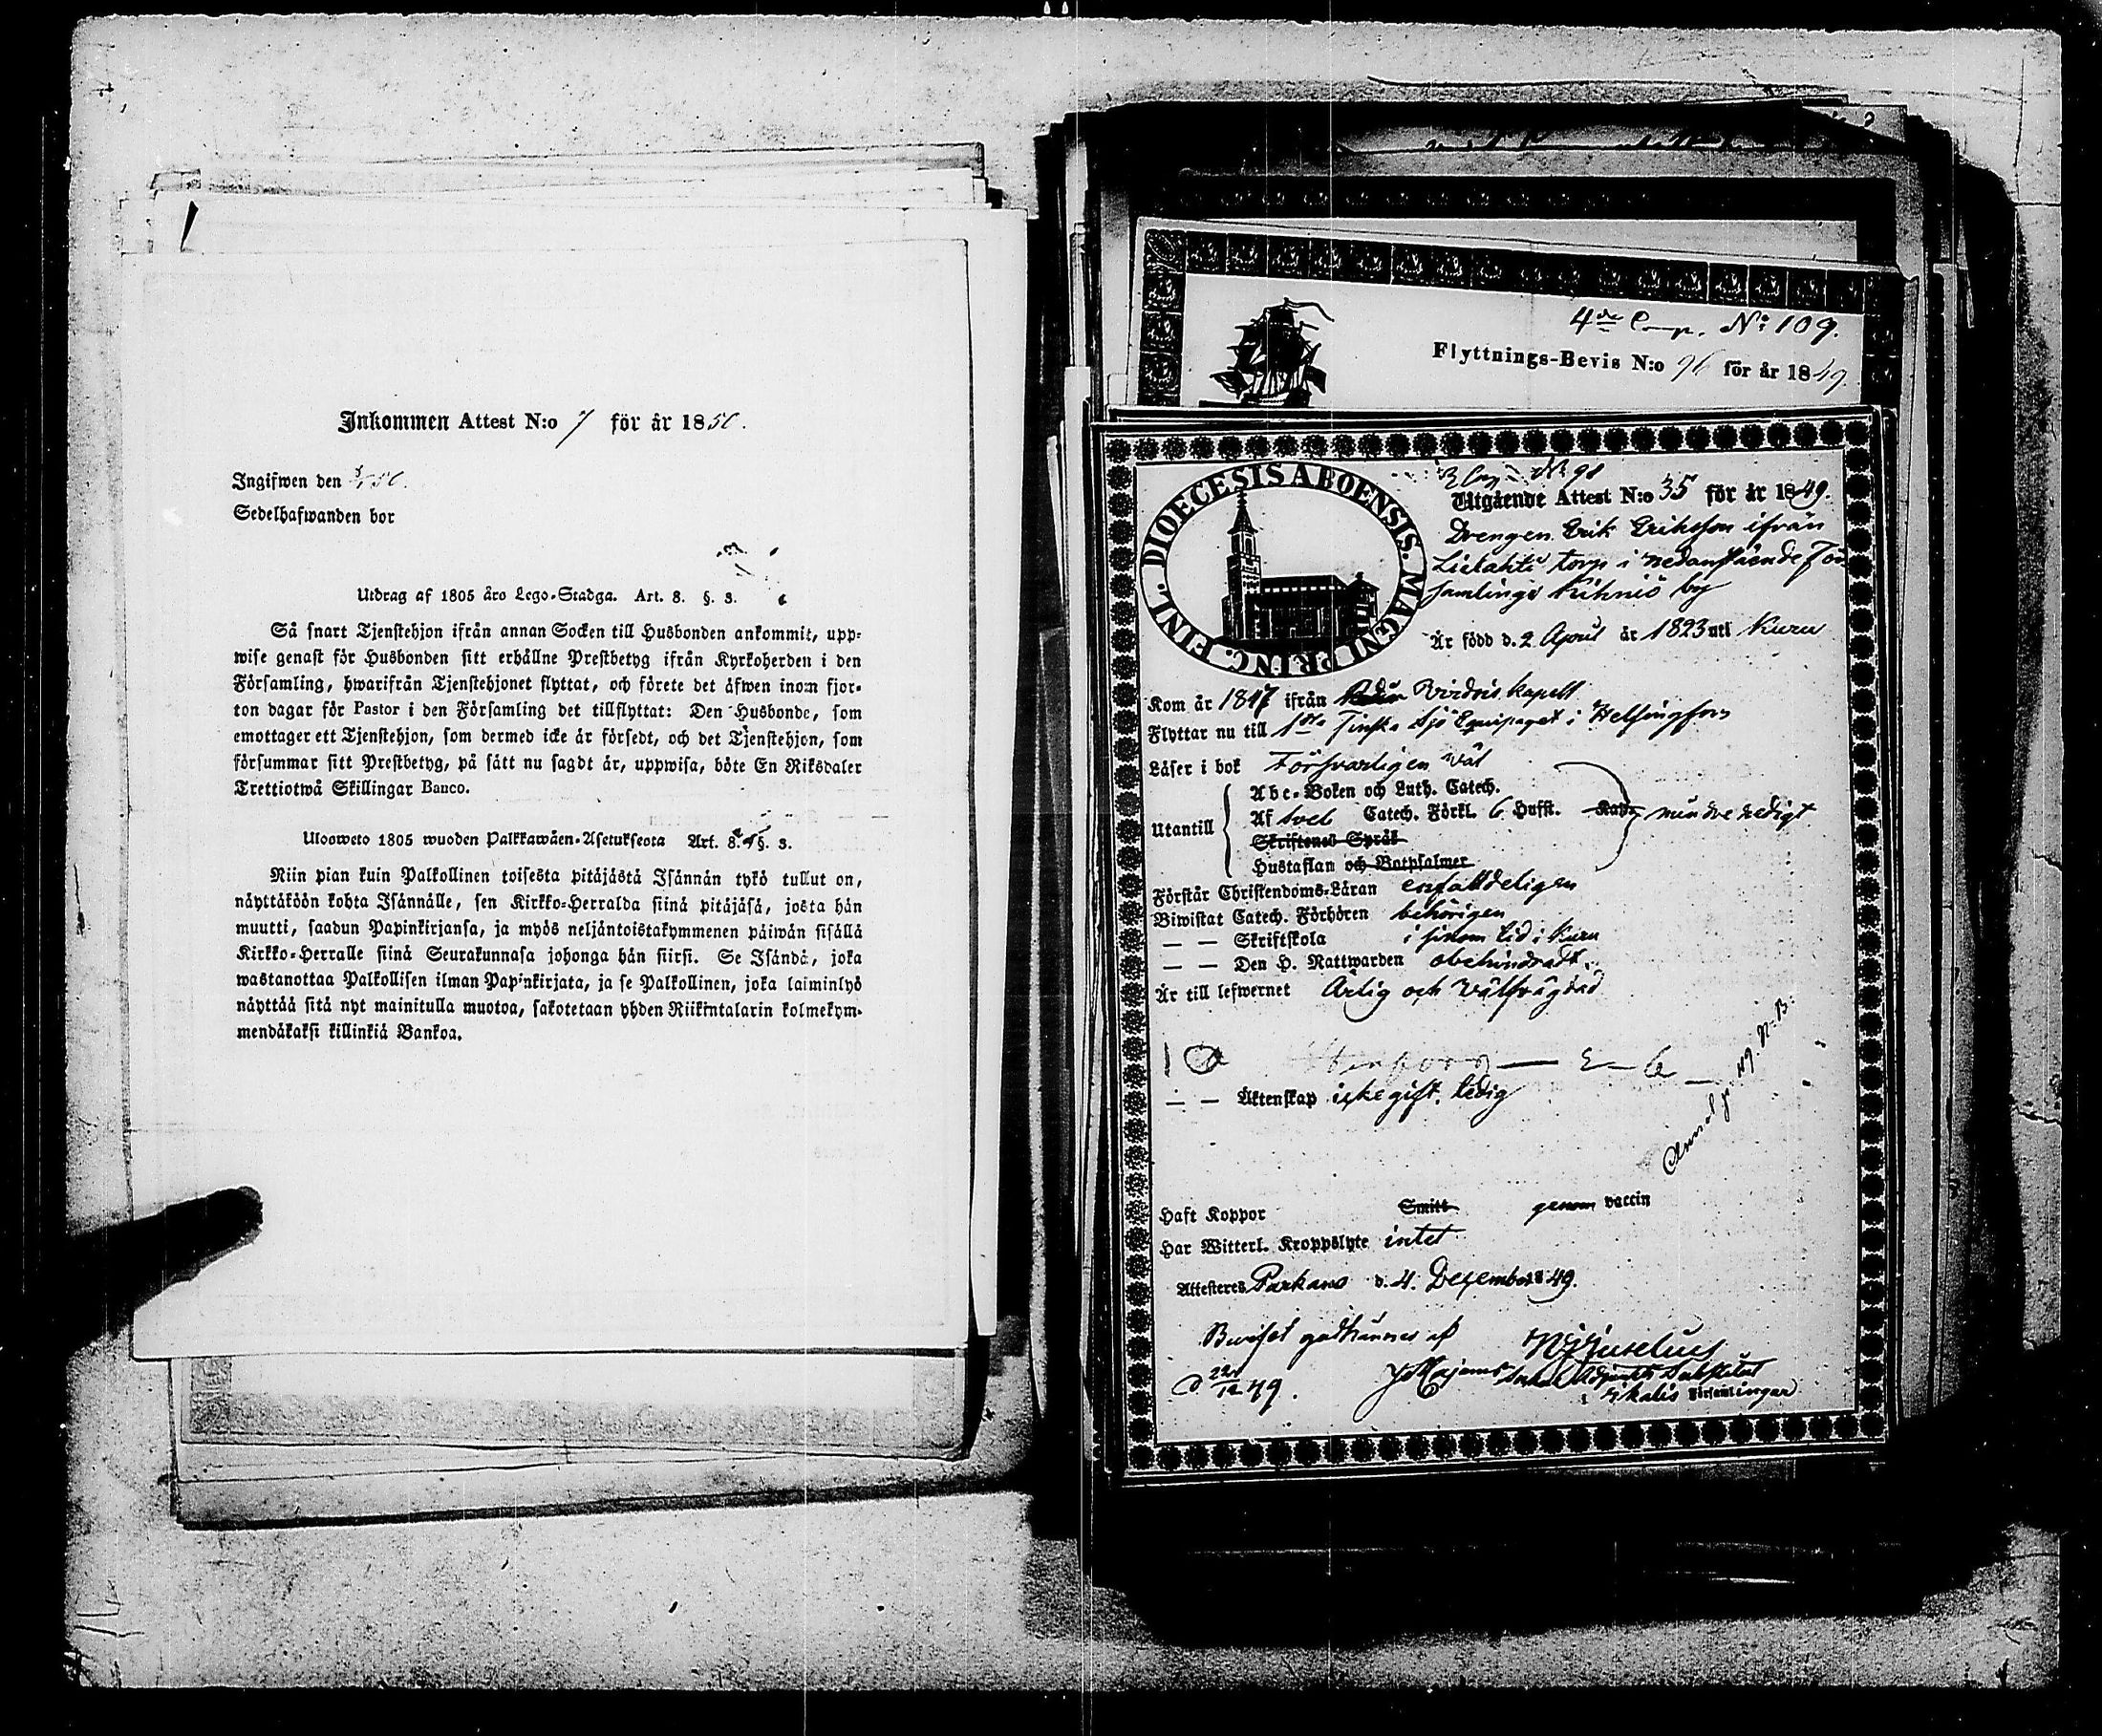 Inkommen Attest N:o 7 för år 1850.
Ingifwen den
Sedelhafwanden bor
Utdrag af 1805 års Lego-Stadga. Art. 8. §. 3.
Så snart Tjenstehjon ifrån annan Socken till Husbonden ankommit, upp-
wise genast för Husbonden sitt erhållne Prestbetyg ifrån Kyrkoherden i den
Församling, hwarifrån Tjenstehjonet flyttat, och förete det äfwen inom fjor-
ton dagar för Pastor i den Församling det tillflyttat: Den Husbonde, som
emottager ett Tjenstehjon, som dermed icke är försedt, och det Tjenstehjon, som
försummar sitt Prestbetyg, på sätt nu sagdt är, uppwisa, böte En Riksdaler
Trettiotwå Skillingar Banco.
Ulosweto 1805 wuoden Palkkawäen-Asetuksesta Art. 8. §. 3.
Niin pian kuin Palkollinen toisesta pitäjästä Isännän tykö tullut on,
näyttäköön kohta Isännälle, sen Kirkko-Herralda siinä pitäjäsä, josta hän
muutti, saadun Papinkirjansa, ja myös neljäntoistakymmenen päiwän sisällä
Kirkko-Herralle siinä Seurakunnasa johonga hän siirsi. Se Isändä, joka
wastanottaa Palkollisen ilman Pap'nkirjata, ja se Palkollinen, joka laiminlyö
näyttää sitä nyt mainitulla muotoa, sakotetaan yhden Riikintalarin kolmekym-
mendäkaksi killinkiä Bankoa.
4de Comp. No 109.
Flyttnings-Bevis N:o 96 för år 1849.
DIOECESIS ABOENSIS. MAGNI PRINC. FINL.
No 98
Utgående Attest N:o 35 för år 1849.
Drengen Erik Eriksson ifrån
Lielahti torp i nedanstående För
samlings Kihniö by
Är född d. 2 April år 1823 uti Kuru
Kom år 1847 ifrån Virdois kapell
Flyttar nu till 1sta Finska Sjö Equipaget i Helsingfors
Läser i bok Försvarligen väl
Utantill
Abc-Boken och Luth. Catech.
Af Sveb Catech. Förkl. 6 Hufst. mindre redigt
Skriftenes Språk
Hustaflan och Botpsalmer
Förstår Christendoms-Läran enfaldeligen
Biwistat Catech. Förhören behörigen
— — Skriftskola i sinom tid i Kuru
— — Den H. Nattwarden obehindradt.
Är till lefwernet Ärlig och Välfrägdad
— — Äktenskap icke gift, ledig
Haft Koppor Smitt genom vaccin
Har Witterl. Kroppslyte intet
Attesteres Parkano d. 4. December 1849.
Beviset godkännes af
d. 49.
i Ikalis Församlingar